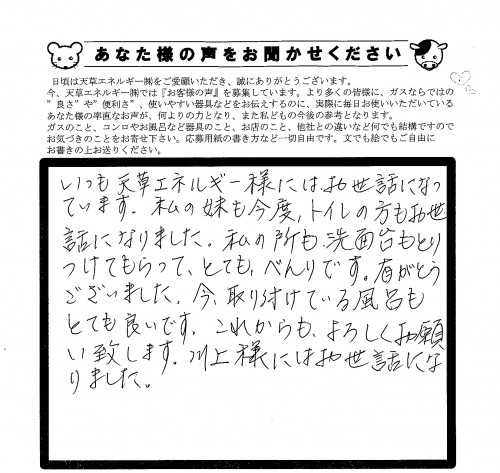 あなた様の声をお聞かせください
日頃は天草エネルギー㈱をご愛願いただき、誠にありがとうございます。
今、天草エネルギー㈱では『お客様の声』を募集しています。より多くの皆様に、ガスならではの
”良さ”や”便利さ”、使いやすい器具などをお伝えするのに、実際に毎日お使いいただいている
あなた様の率直なお声が、何よりの力となり、また私どもの今後の参考となります。
ガスのこと、コンロやお風呂など器具のこと、お店のこと、他社との違いなど何でも結構ですので
お気づきのことをお寄せ下さい。応募用紙の書き方など一切自由です。文でも絵でもご自由に
お書きの上お送りください。
いつも天草エネルギー様にはお世話になっ
ています。私の妹も今度、トイレの方もお世
話になりました。私の所も、洗面台もとり
つけてもらって、とても、べんりです。有がとう
ございました。今、取り付けている風呂も
とても良いです。これからも、よろしくお願
い致します。川上様にはお世話にな
りました。